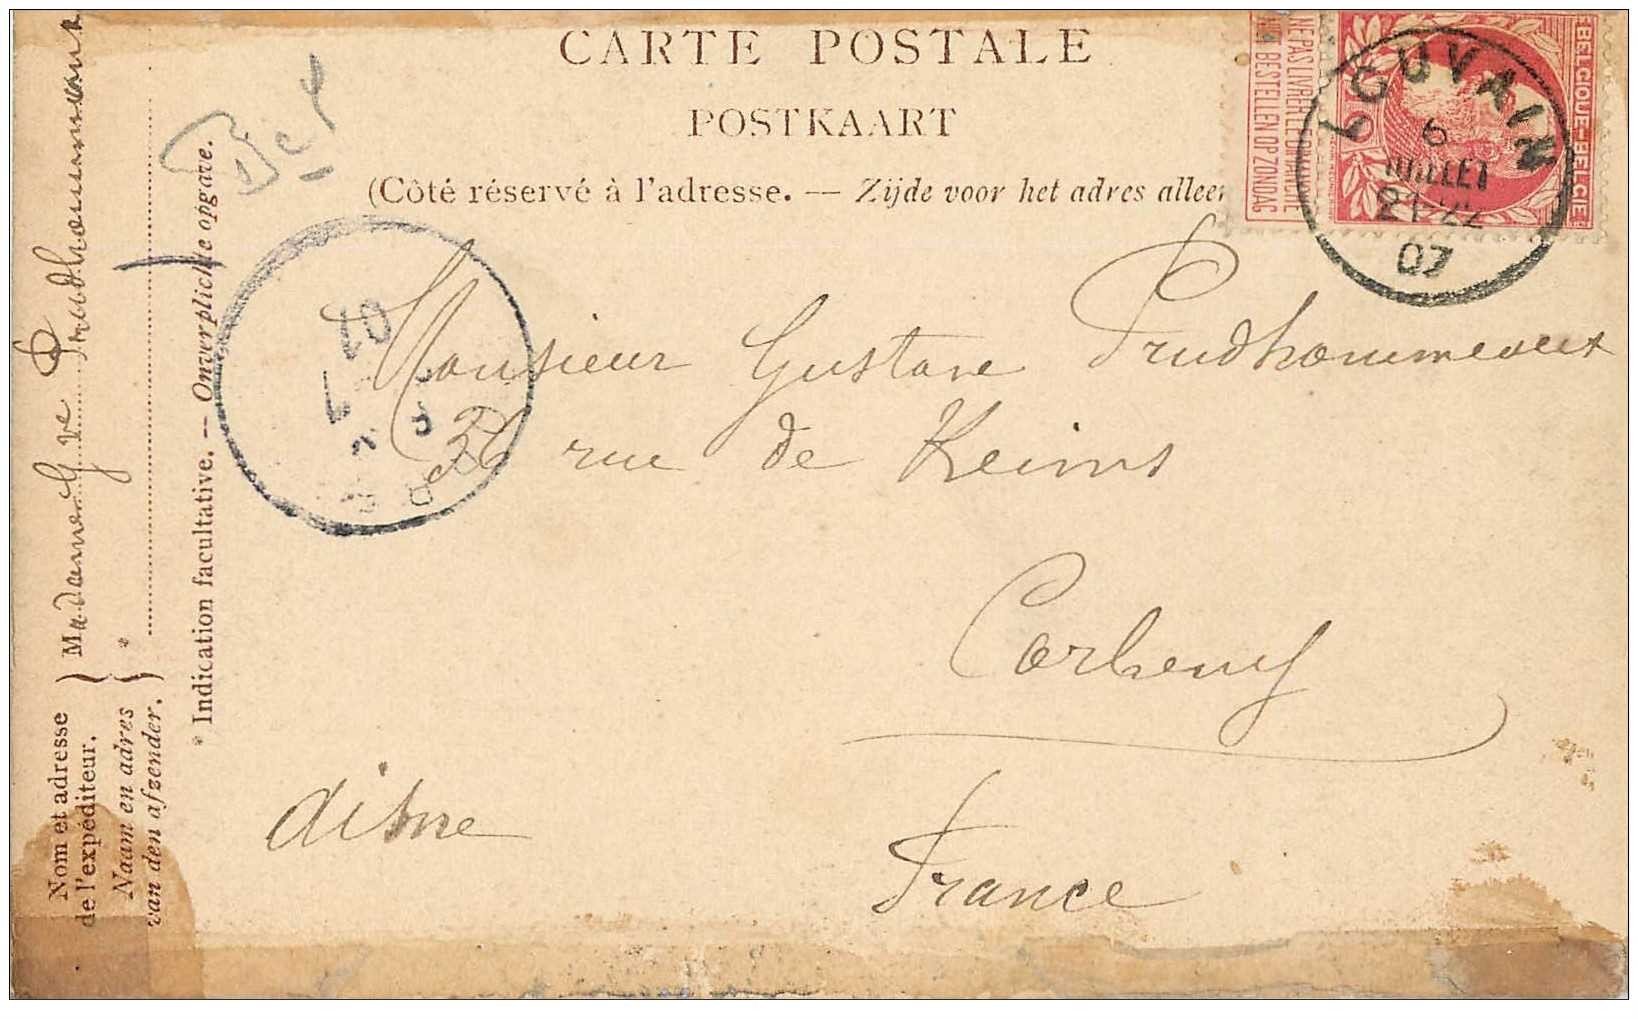 CARTE POSTALE
POSTKAART
(Côté réservé à l'adresse. — Zijde voor het adres alleen
BELGIQUE-BELGIË
NE PAS LIVRER LE DIMANCHE
NIET BESTELLEN OP ZONDAG
LOUVAIN
6
JUILLET
21-22
07
Monsieur Gustave Prudhommeaux
36 rue de Reims
Corbeny
Aisne
France
07
7
Nom et adresse
de l'expéditeur.
Naam en adres
van den afzender.
Madame Gve Prudhommeaux
*
* Indication facultative. — Onverplichte opgave.